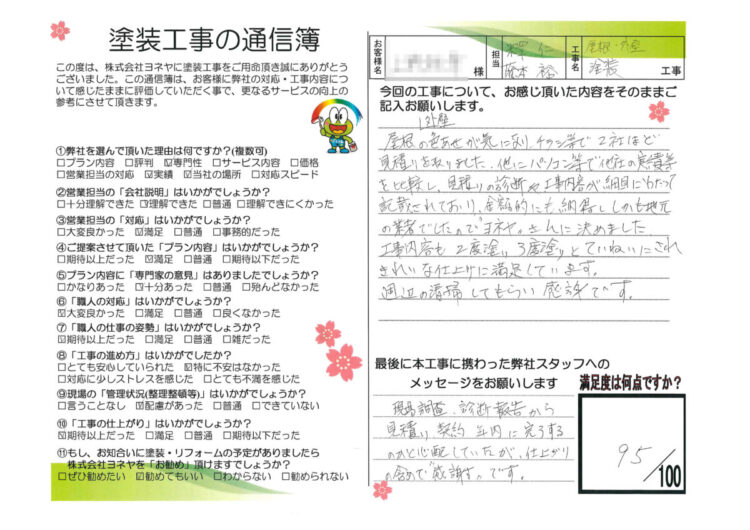 塗装工事の通信簿
この度は、株式会社ヨネヤに塗装工事をご用命頂き誠にありがとう
ございました。この通信簿は、お客様に弊社の対応・工事内容につ
いて感じたままに評価していただく事で、更なるサービスの向上の
参考にさせて頂きます。
①弊社を選んで頂いた理由は何ですか?(複数可)
□プラン内容 □評判 ☑専門性 □サービス内容 □価格
□営業担当の対応 ☑実績 ☑当社の場所 □対応スピード
②営業担当の「会社説明」はいかがでしょうか?
□十分理解できた ☑理解できた □普通 □理解できにくかった
③営業担当の「対応」はいかがでしょうか?
□大変良かった ☑満足 □普通 □事務的だった
④ご提案させて頂いた「プラン内容」はいかがでしょうか?
□期待以上だった ☑満足 □普通 □期待以下だった
⑤プラン内容に「専門家の意見」はありましたでしょうか?
□かなりあった ☑十分あった □普通 □殆んどなかった
⑥「職人の対応」はいかがでしょうか?
☑大変良かった □満足 □普通 □良くなかった
⑦「職人の仕事の姿勢」はいかがでしょうか?
☑期待以上だった □満足 □普通 □雑だった
⑧「工事の進め方」はいかがでしたか?
□とても安心していられた ☑特に不安はなかった
□対応に少しストレスを感じた □とても不満を感じた
⑨現場の「管理状況(整理整頓等)」はいかがでしょうか?
□言うことなし ☑配慮があった □普通 □できていない
⑩「工事の仕上がり」はいかがでしょうか?
☑期待以上だった □満足 □普通 □期待以下だった
⑪もし、お知合いに塗装・リフォームの予定がありましたら
株式会社ヨネヤを「お勧め」頂けますでしょうか?
□ぜひ勧めたい ☑勧めてもいい □わからない □勧められない
お客様名
様
担当
仁
藤木 裕
工事名
屋根・外壁
塗装
工事
今回の工事について、お感じ頂いた内容をそのままご
記入お願いします。
外壁
屋根の色あせが気になり、チラシ等で2社ほど
見積りを取りました。他にパソコン等で他社の実績等
を比較し、見積りの診断や工事内容が細目にわたって
記載されており、金額的にも納得ししかも地元
の業者でしたので"ヨネヤ"さんに決めました。
工事内容も2度塗り3度塗りとていねいにされ
きれいな仕上りに満足しています。
周辺の清掃してもらい感謝です。
最後に本工事に携わった弊社スタッフへの
メッセージをお願いします
現場調査、診断報告から
見積り、契約 年内に完了する
のかと心配していたが、仕上がり
の含めて"感謝"です。
満足度は何点ですか?
95
/100